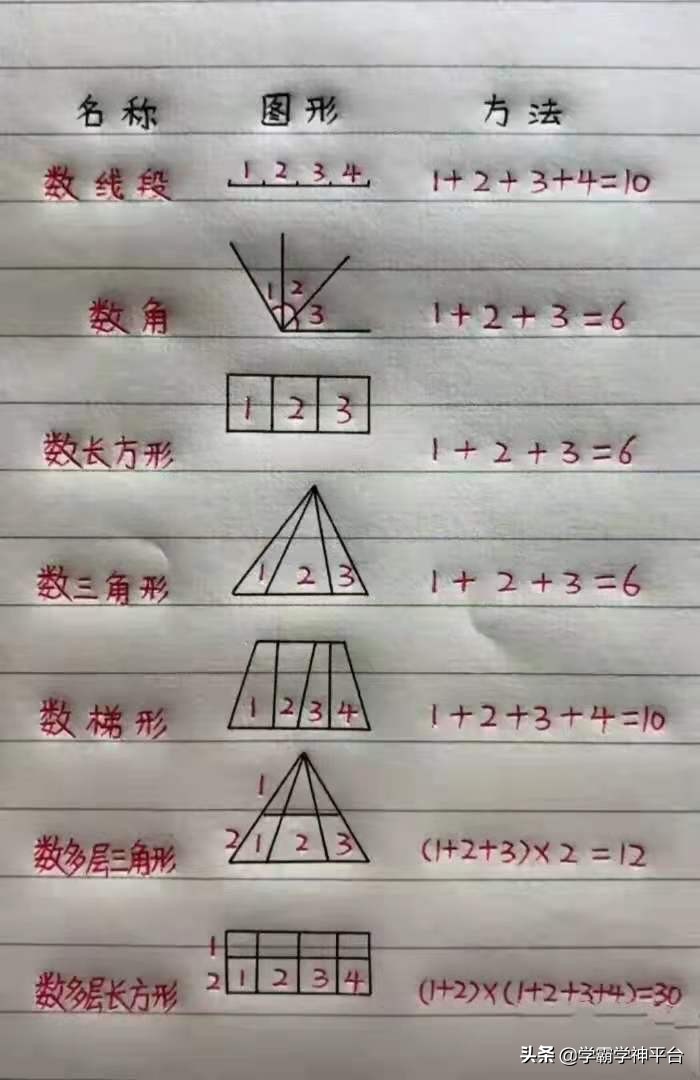 名称 图形 方法
数线段 1 2 3 4 1+2+3+4=10
数角 1 2 3 1+2+3=6
数长方形 1 2 3 1+2+3=6
数三角形 1 2 3 1+2+3=6
数梯形 1 2 3 4 1+2+3+4=10
1
数多层三角形 2 1 2 3 (1+2+3)×2=12
1
数多层长方形 2 1 2 3 4 (1+2)×(1+2+3+4)=30
头条 @学霸学神平台